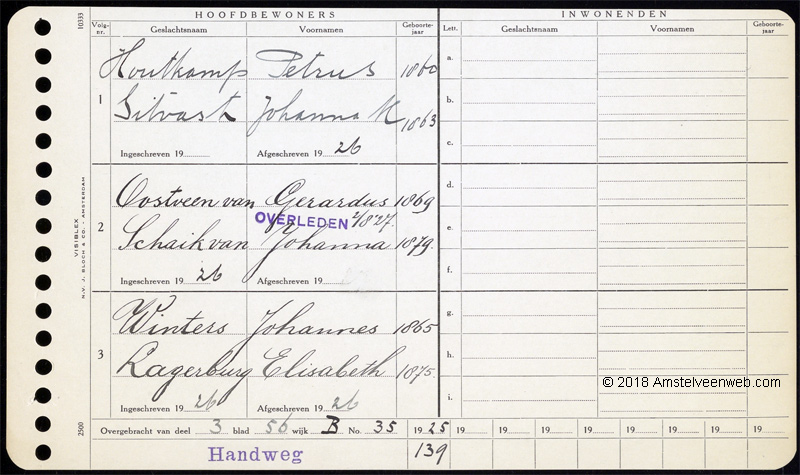 HOOFDBEWONERS INWONENDEN
Volg-nr. Geslachtsnaam Voornamen Geboorte-jaar Lett. Geslachtsnaam Voornamen Geboorte-jaar
10333
1
Houtkamp Petrus 1860
Sitvast Johanna M 1863
Ingeschreven 19 Afgeschreven 19 26
a.
b.
c.
2
Oostveen van Gerardus 1869
OVERLEDEN 2/8 27.
Schaik van Johanna 1879.
Ingeschreven 19 26 Afgeschreven 19
d.
e.
f.
3
Winters Johannes 1865
Lagerburg Elisabeth 1875.
Ingeschreven 19 26 Afgeschreven 19 26
g.
h.
i.
VISIBLEX
N.V. J. BLOCH & CO. - AMSTERDAM
2500
© 2018 Amstelveenweb.com
Overgebracht van deel 3 blad 56 wijk B No. 35 1925 19 19 19 19 19 19 19 19
Handweg 139